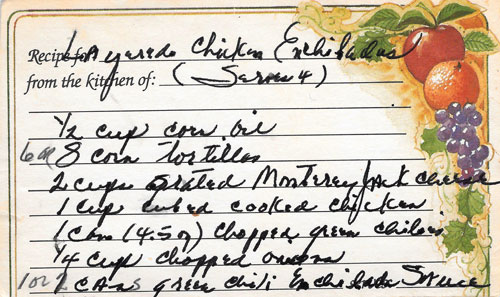 Recipe for Layered Chicken Enchiladas
from the kitchen of: (Serves 4)
1/2 cup corn oil
6 or 8 corn tortillas
2 cups grated Monterey Jack cheese
1 cup cubed cooked chicken
1 can (4.5 oz) chopped green chilies
1/4 cup chopped onions
1 or 2 cans green chili Enchilada Sauce